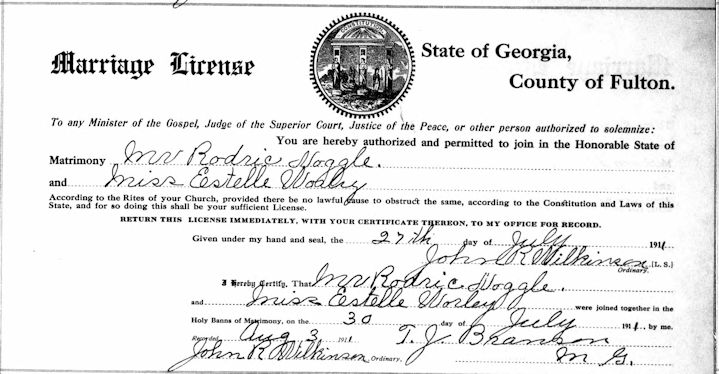 Marriage License
CONSTITUTION
State of Georgia,
County of Fulton.
To any Minister of the Gospel, Judge of the Superior Court, Justice of the Peace, or other person authorized to solemnize:
You are hereby authorized and permitted to join in the Honorable State of
Matrimony Mr Rodric Noggle.
and Miss Eestelle Worley
According to the Rites of your Church, provided there be no lawful cause to obstruct the same, according to the Constitution and Laws of this
State, and for so doing this shall be your sufficient License.
RETURN THIS LICENSE IMMEDIATELY, WITH YOUR CERTIFICATE THEREON, TO MY OFFICE FOR RECORD.
Given under my hand and seal, the 27th day of July 1911
John R Wilkinson [L. S.]
Ordinary.
I Hereby Certify, That Mr Rodric Noggle.
and Miss Estelle Worley were joined together in the
Holy Banns of Matrimony, on the 30 day of July 1911, by me.
Recorded Aug 3, 1911 T. J. Branson
John R Wilkinson Ordinary. M G.